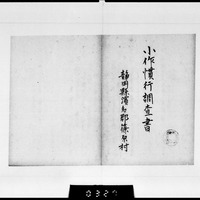 小作慣行調査書
靜岡縣濱名郡篠原村
0320